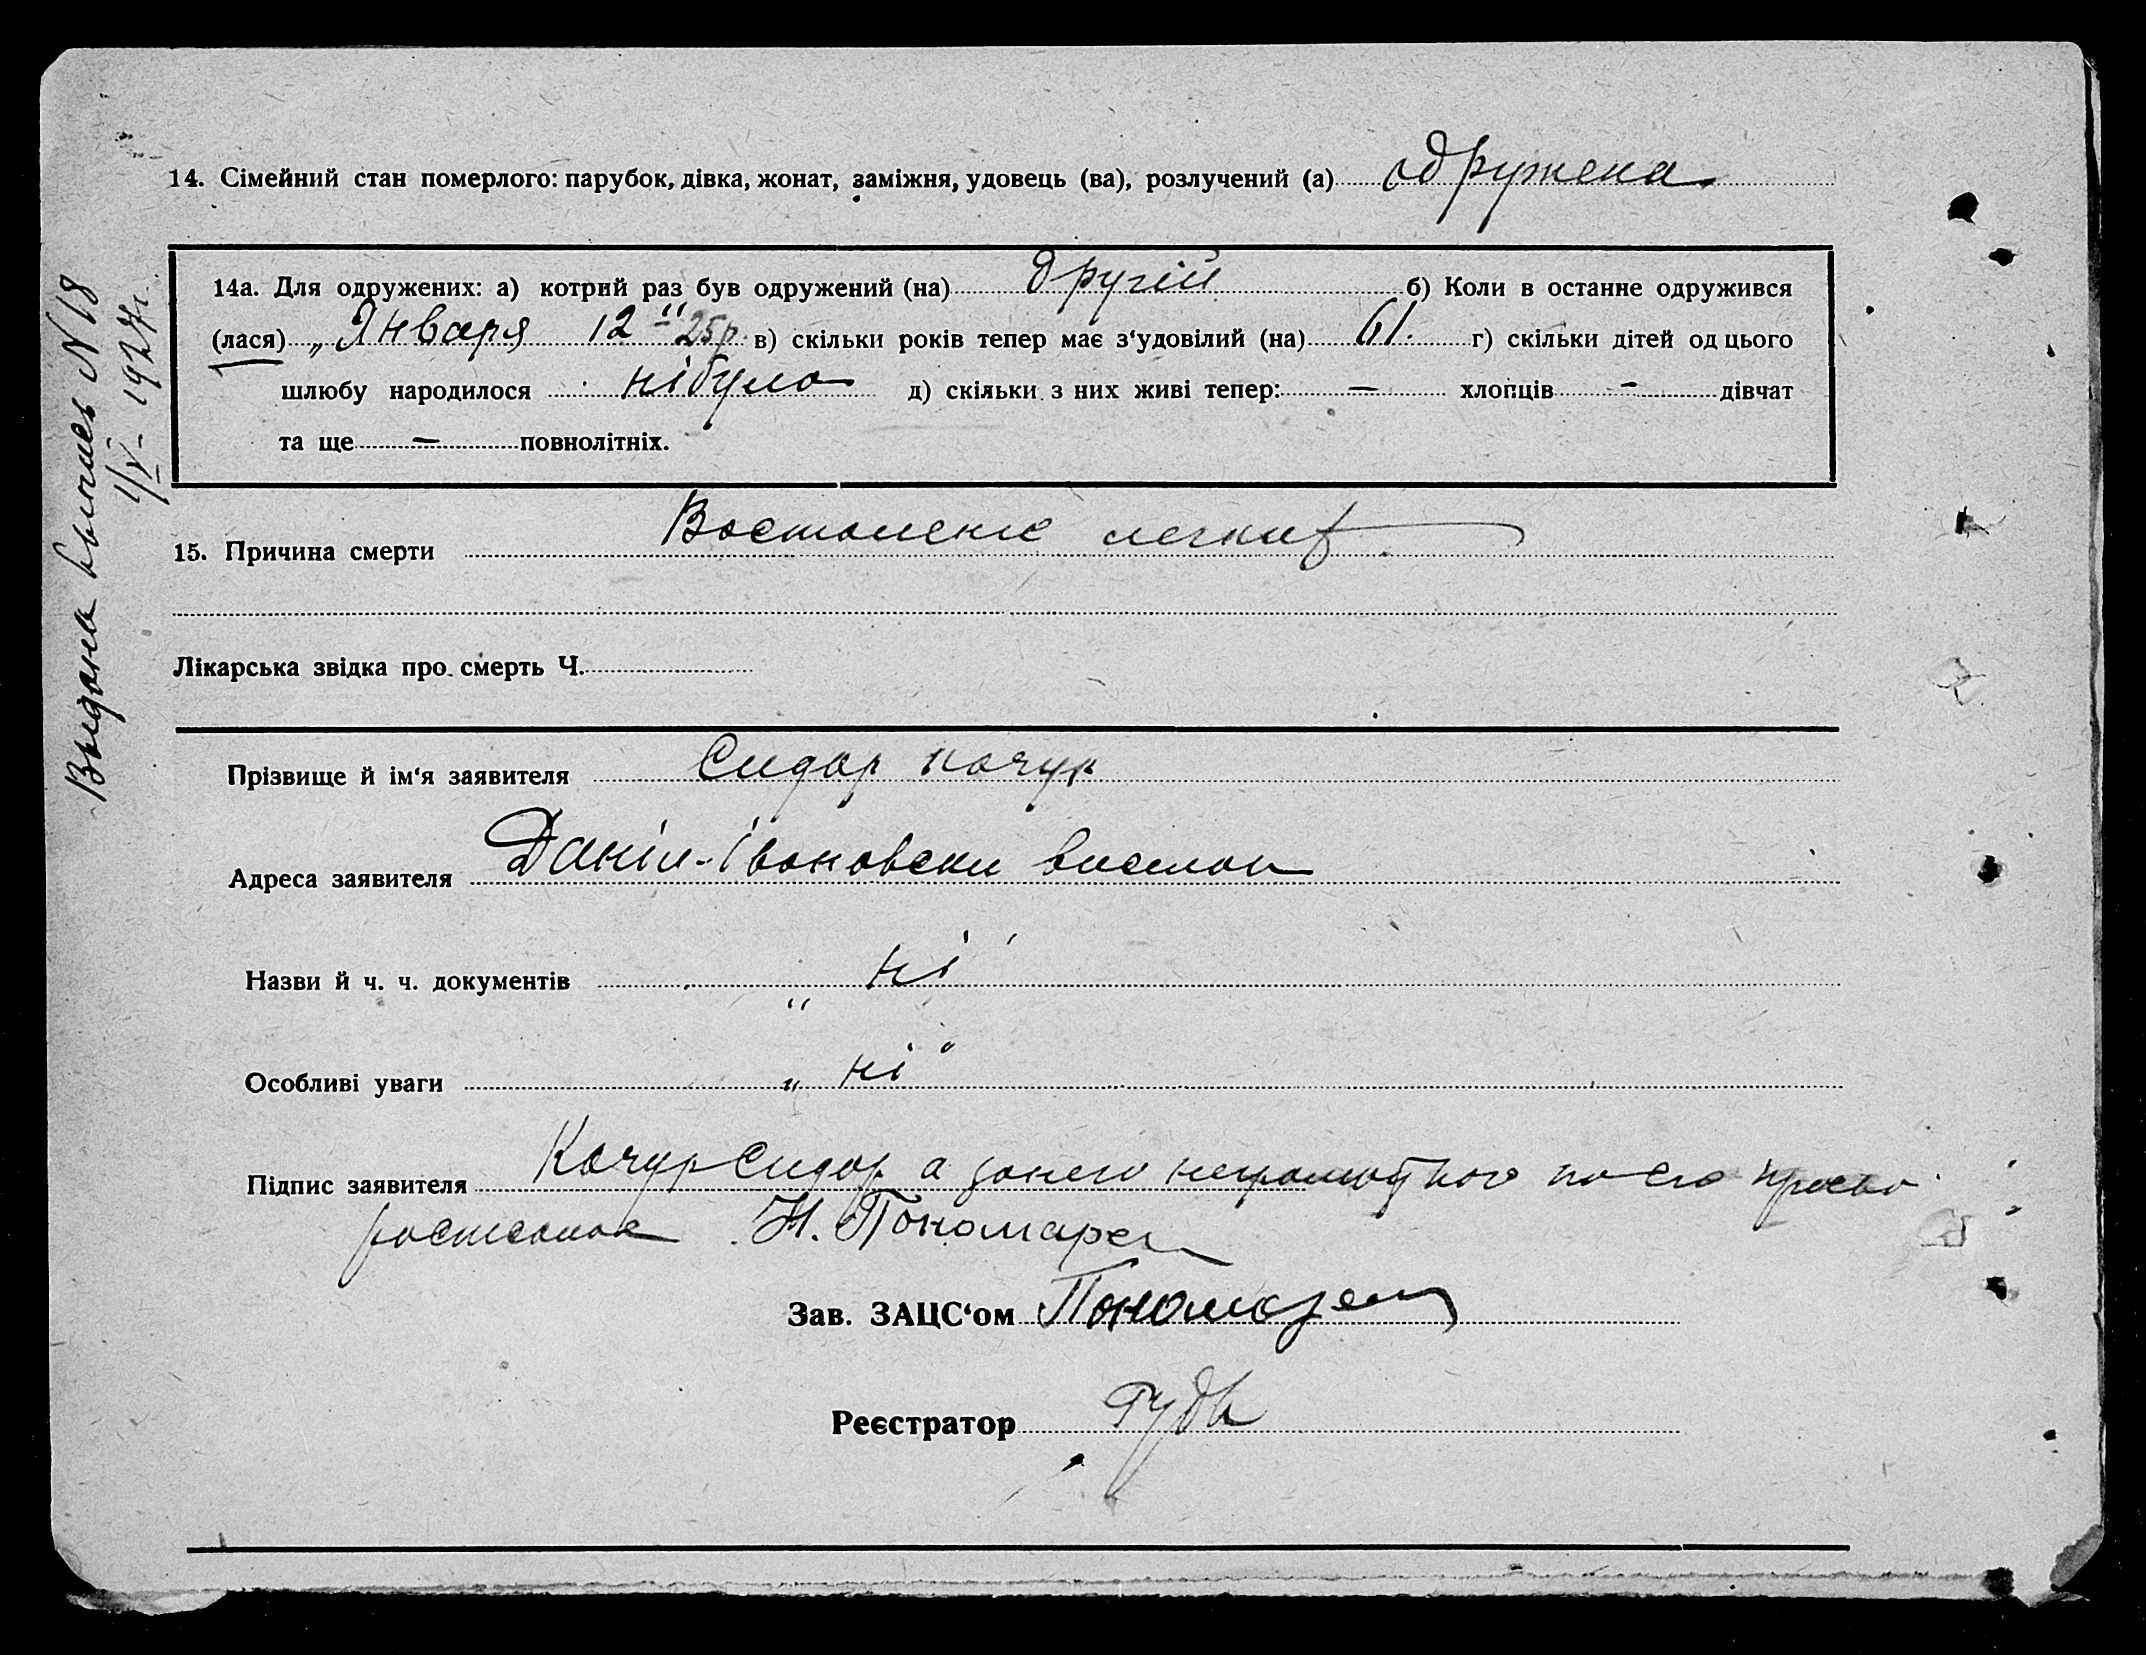 14. Сімейний стан померлого: парубок, дівка, жонат, заміжня, удовець (ва), розлучений (а) одружена
14а. Для одружених: а) котрий раз був одружений (на) другій б) Коли в останне одружився
(лася) „Января 12" 25р. в) скільки років тепер має з'удовілий (на) 61. г) скільки дітей од цього
шлюбу народилося нібуло д) скільки з них живі тепер: — хлопців — дівчат
та ще — повнолітніх.
15. Причина смерти Воспаление легких
Лікарська звідка про смерть Ч.
Прізвище й ім'я заявителя Сидор Качур
Адреса заявителя Даніл-Івановски виселок
Назви й ч. ч. документів „ ні "
Особливі уваги „ ні "
Підпис заявителя Качур Сидор а занего неграмотного по его
Н. Пономарен
Зав. ЗАЦС'ом Пономарен
Реєстратор
Выдана выпись N 18
1/V - 1927г.